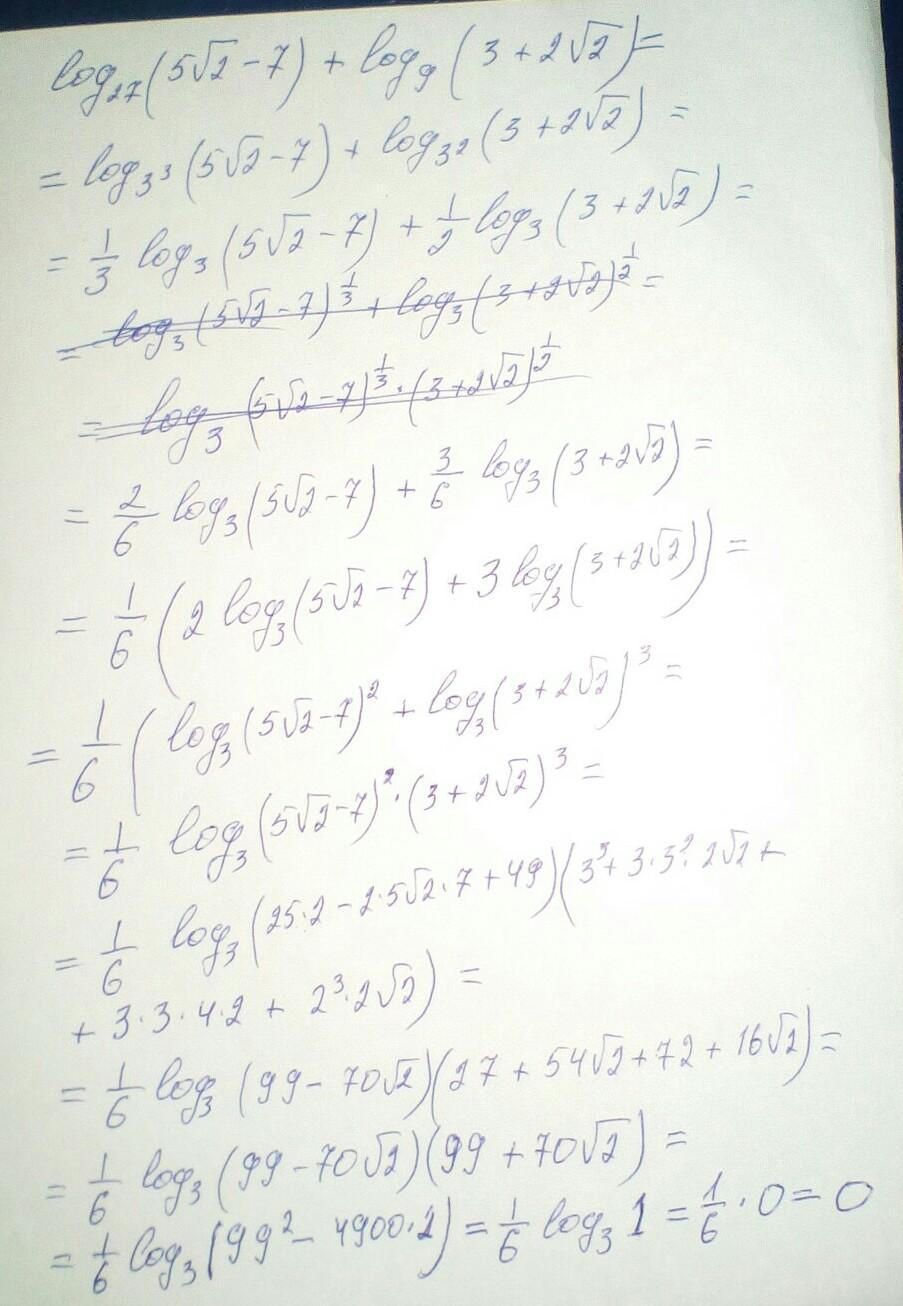 log₂₇(5√2-7) + log₉(3+2√2)=
= log₃³(5√2-7) + log₃²(3+2√2) =
= 1/3 log₃(5√2-7) + 1/2 log₃(3+2√2) =
= log₃(5√2-7)^(1/3) + log₃(3+2√2)^(1/2) =
= log₃ (5√2-7)^(1/3)·(3+2√2)^(1/2)
= 2/6 log₃(5√2-7) + 3/6 log₃(3+2√2) =
= 1/6 (2 log₃(5√2-7) + 3 log₃(3+2√2)) =
= 1/6 ( log₃(5√2-7)² + log₃(3+2√2)³ =
= 1/6 log₃(5√2-7)²·(3+2√2)³ =
= 1/6 log₃(25·2 - 2·5√2·7 + 49)(3³+3·3²·2√2+
+ 3·3·4·2 + 2³·2√2) =
= 1/6 log₃ (99-70√2)(27+54√2+72+16√2)=
= 1/6 log₃(99-70√2)(99+70√2) =
= 1/6 log₃(99² - 4900·2) = 1/6 log₃ 1 = 1/6 · 0 = 0